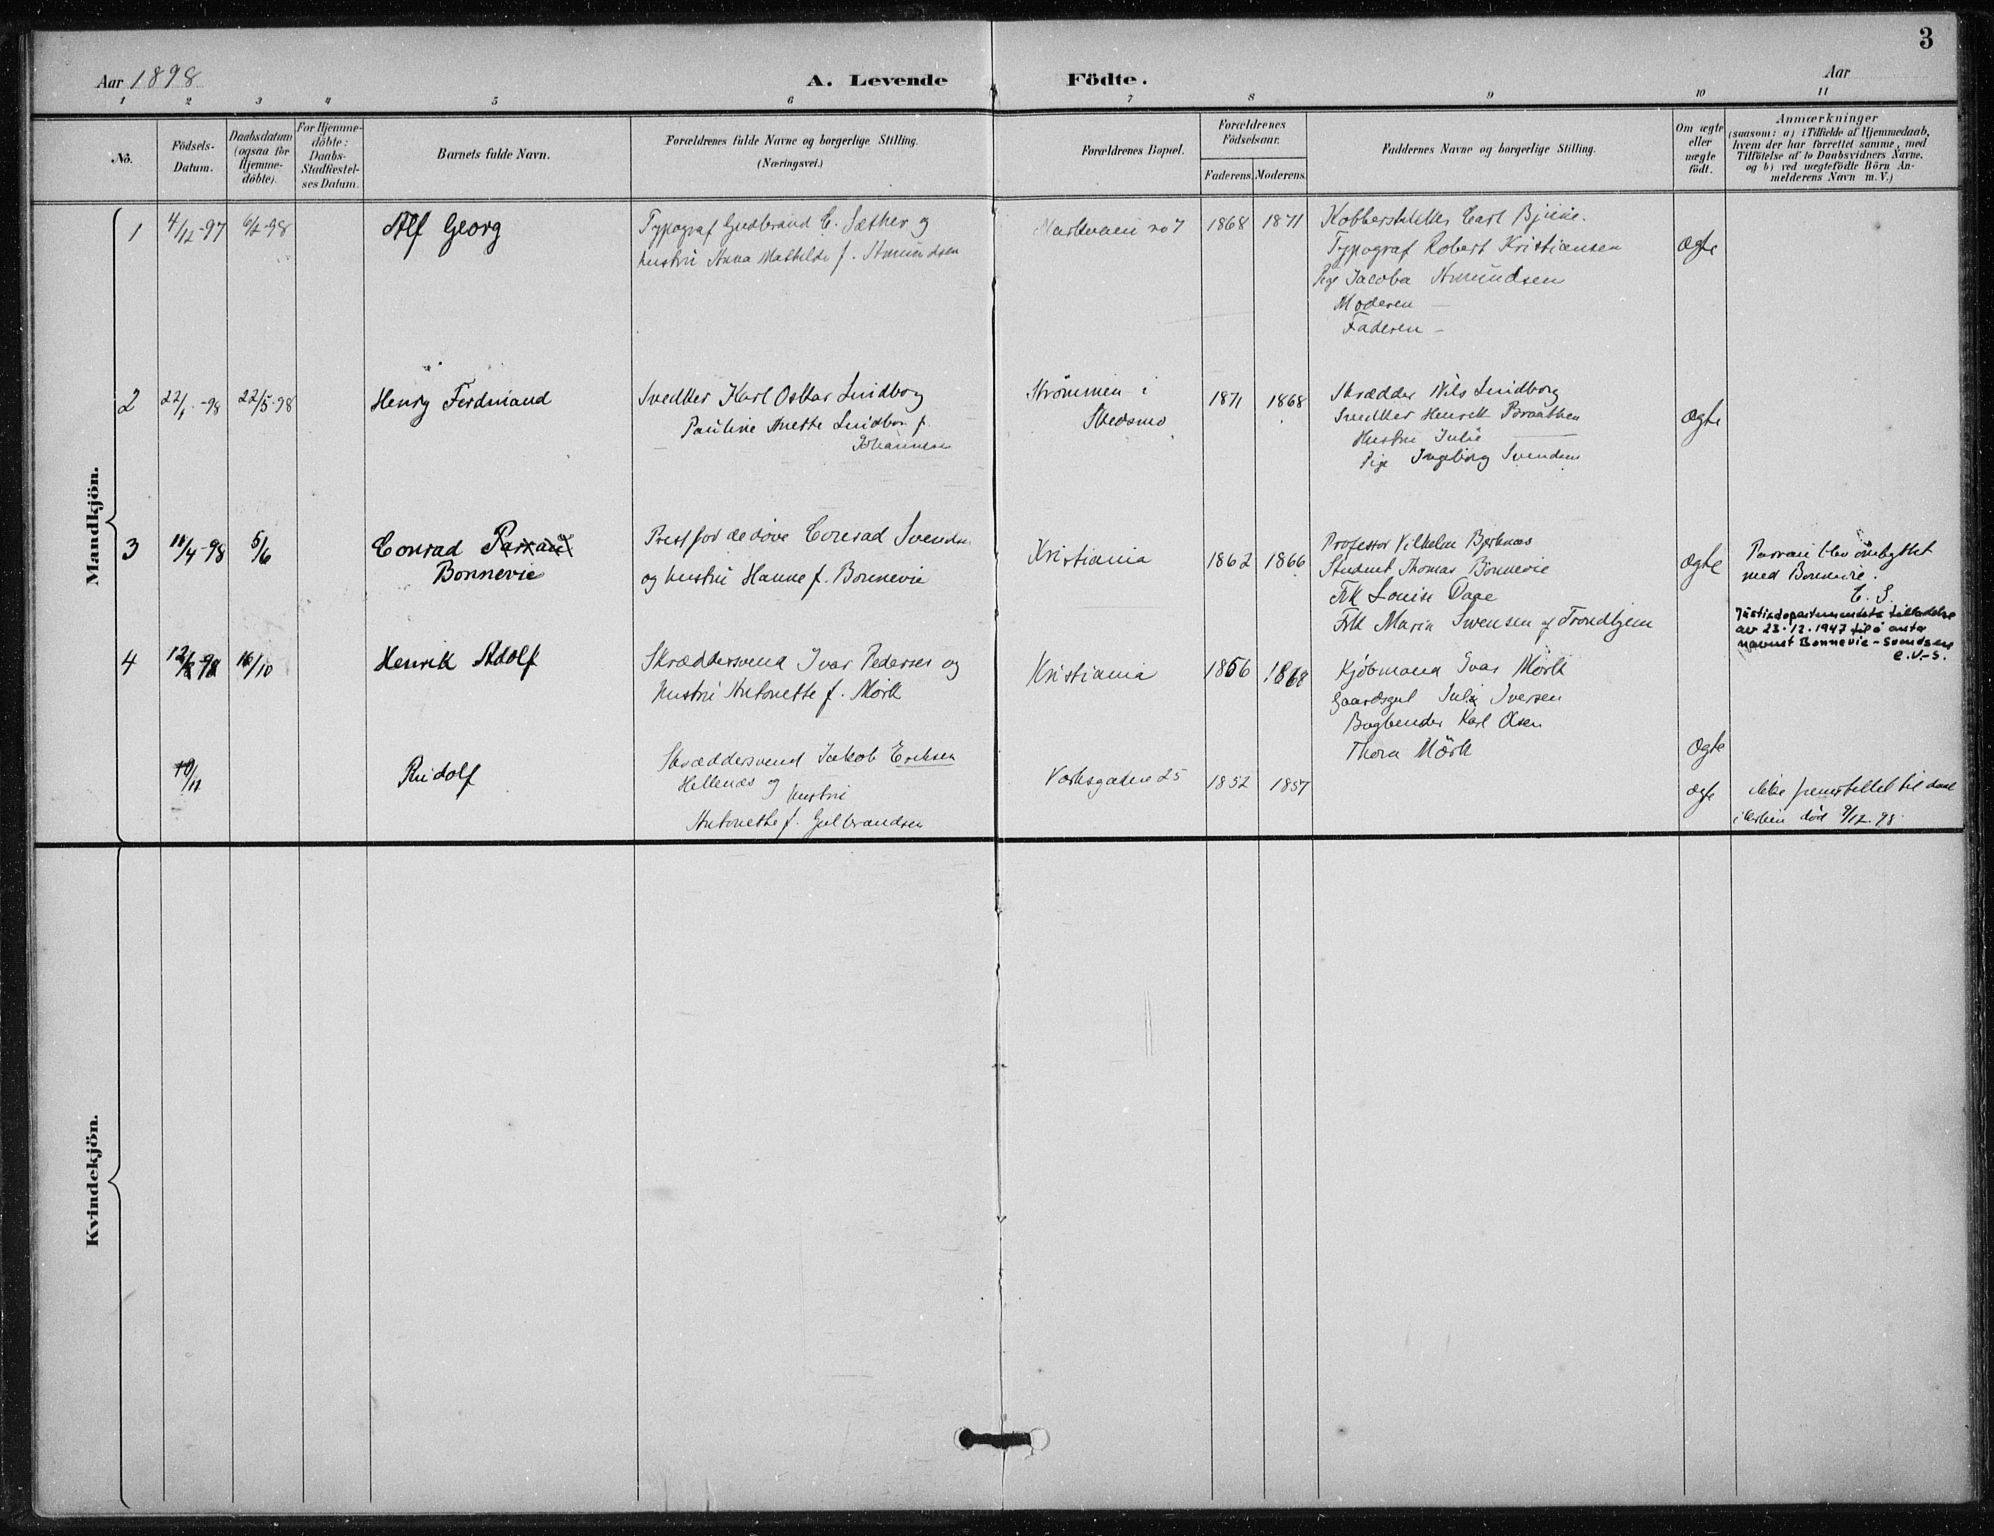 3
Aar 1898
A. Levende Födte.
Aar
1 2 3 4 5 6 7 8 9 10 11
No.
Födsels-
Datum.
Daabsdatum
(ogsaa for
Hjemme-
döbte).
For Hjemme-
döbte:
Daabs-
Stadfæstel-
ses Datum.
Barnets fulde Navn.
Forældrenes fulde Navne og borgerlige Stilling.
(Næringsvei.)
Forældrenes Bopæl.
Forældrenes
Födselsaar.
Faderens. Moderens.
Faddernes Navne og borgerlige Stilling.
Om ægte
eller
uægte
födt.
Anmærkninger
(saasom: a) i Tilfælde af Hjemmedaab,
hvem der har forrettet samme, med
Tilföielse af to Daabsvidners Navne,
og b) ved uægtefödte Börn An-
melderens Navn m. V.)
Mandkjön.
1
4/12-97
6/2-98
Alf Georg
Typograf Gudbrand E. Sæther og
hustru Anna Mathilde f. Amundsen
no 7
1868
1871
Kobberstikker Carl
Typograf Robert Kristiansen
Pige Jacoba Amundsen
Moderen –
Faderen –
Ægte
2
22/1-98
22/5-98
Henry Ferdinand
Snedker Karl Oskar Lindborg
Pauline Anette Lindbor f.
Johannesen
Strømmen i
Skedsmo
1871
1868
Skrædder Nils Lindborg
Snedker Henrik Braathen
Hustru Julie
Pige Ingeborg Svendsen
Ægte
3
11/4-98
5/6
Conrad Parrau
Bonnevie
Prest for de døve Conrad Svendsen
og hustru Hanne f. Bonnevie
Kristiania
1862
1866
Professor Vilhelm Bjerknæs
Student Thomas Bonnevie
Frk Louise Daae
Frk Maria Svensen af Trondhjem
Ægte
blev ombyttet
med Bonnevie.
C. S.
Justisdepartementets tilladelse
av 23.12.1947 til å anta
navnet Bonnevie-Svendsen
C.V-S.
4
12/8-98
16/10
Henrik Adolf
Skræddersvend Ivar Pedersen og
hustru Antonette f. Mørk
Kristiania
1856
1868
Kjøbmand Ivar Mørk
Gaardsgut Iversen
Bogbinder Karl Olsen
Thora Mørk
Ægte
10/11
Rudolf
Skræddersvend Jakob Eriksen
Hellenæs og hustru
Antonette f. Gulbrandsen
25
1852
1857
Ægte
ikke fremstillet til daab
i Kirken død 9/12.98
Kvindekjön.